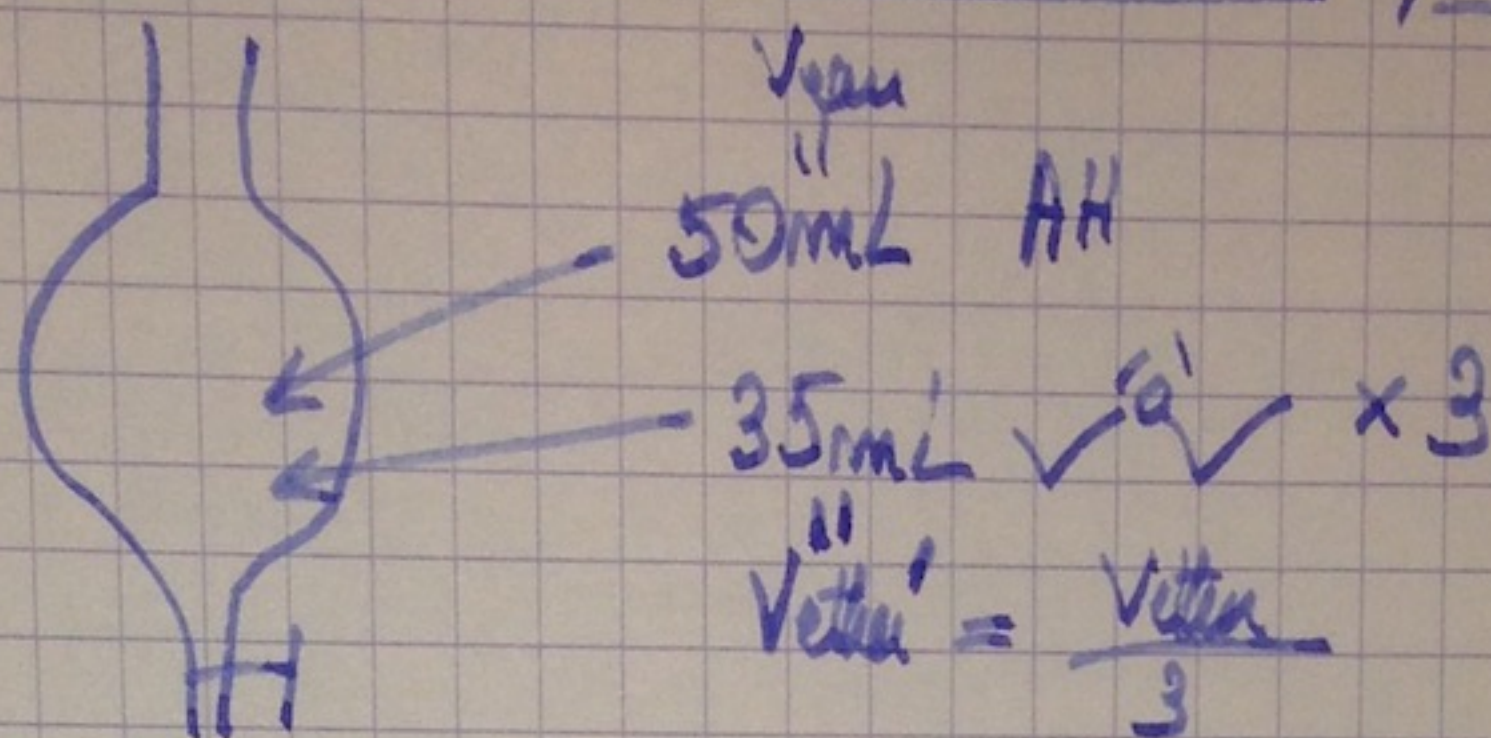 Veau
"
50mL AH
35mL O x 3
"
Vether' = Vether
3